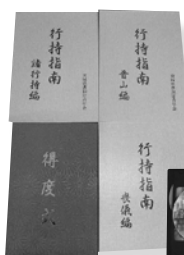 行持指南
諸行持編
行持指南
晋山編
得度式
行持指南
喪儀編